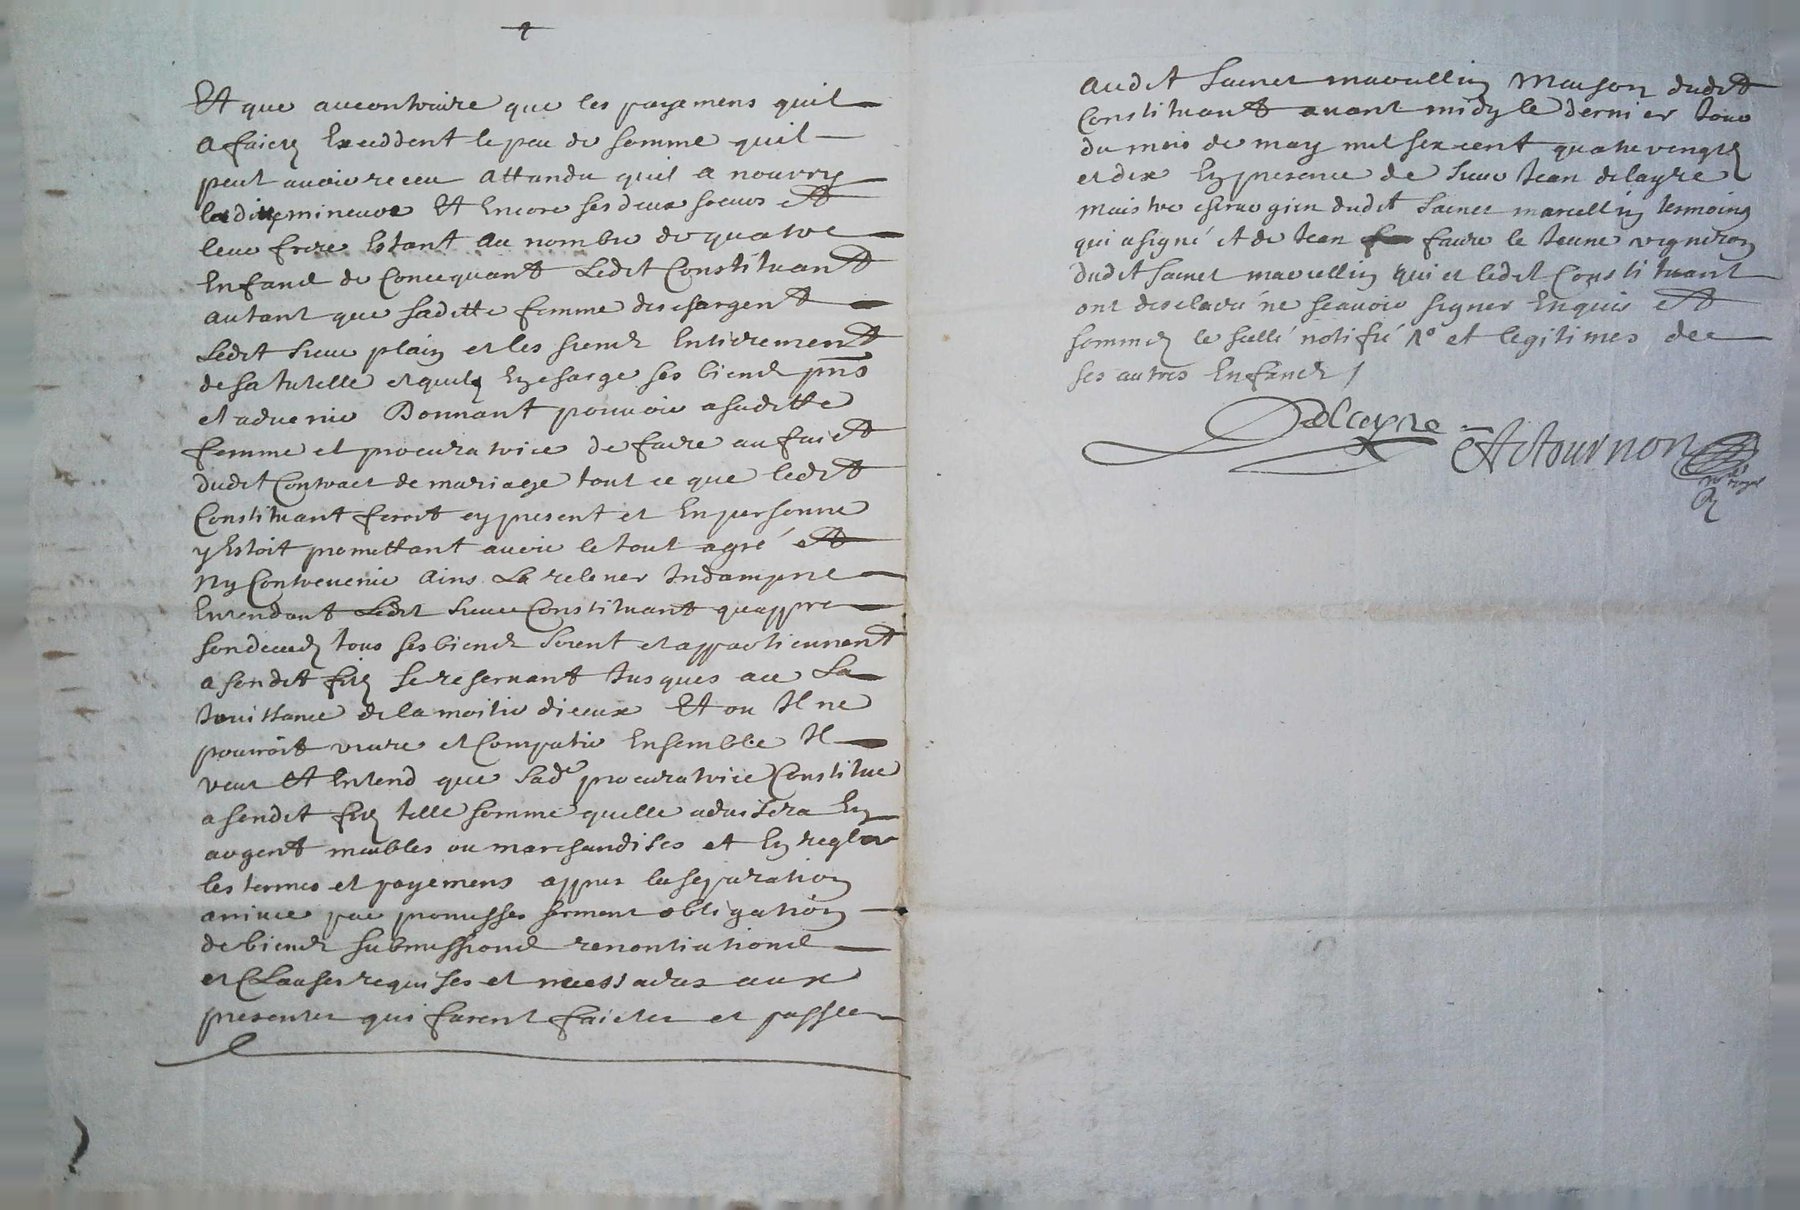 Et que aucontraire que les payemens quil
a faictz Exceddent le peu de somme quil
peut avoir receu attandu quil a nourry
mineure Et Encore ses deux soeurs Et
leur frere Estant au nombre de quatre
Enfand de Concequant Ledit Constituant
autant que saditte femme deschargent
Ledit sieur plain et les siend Entierement
de sa tutelle et quilz En charge ses biend pns
et advenir Donnant pouvoir a saditte
femme et procuratrice de faire au faict
dudit Contract de mariage tout ce que ledit
Constituant feroit sy present et En personne
y Estoit promettant avoir le tout agré et
ny Contrevenir Ains La relever Indampne
Entendant Ledit sieur Constituant quappres
son deceds tous ses biend soient et appartiennent
a sondit filz se reservant Jusques au La
Jouissance de la moitie diceux Et ou Il ne
pouroit vivre et Compatir Ensemble Il
veut Et Entend que sade procuratrice Constitue
a sondit filz telle somme quelle advisera En
argent meubles ou marchandises et En regler
les termes et payemens appres la separation
arrivee par promesses serment obligation
de biend submissiond renontiationd
et Clauses requises et necessaires aux
presentes qui furent faictes et passees
audit sainct marcellin Maison dudit
Constituant avant midy le dernier Jour
du mois de may mil six cent quatre vingtz
et dix En presence de sieur Jean delayre
maistre chirurgien dudit sainct marcellin tesmoing
qui a signé et de Jean faure le Jeune vigneron
dudit sainct marcellin qui et ledit Constituant
ont desclaré ne scavoir signer Enquis et
sommés le scellé notifié No et legitimes de
ses autres Enfands /
Delayre
Actournon
no royal